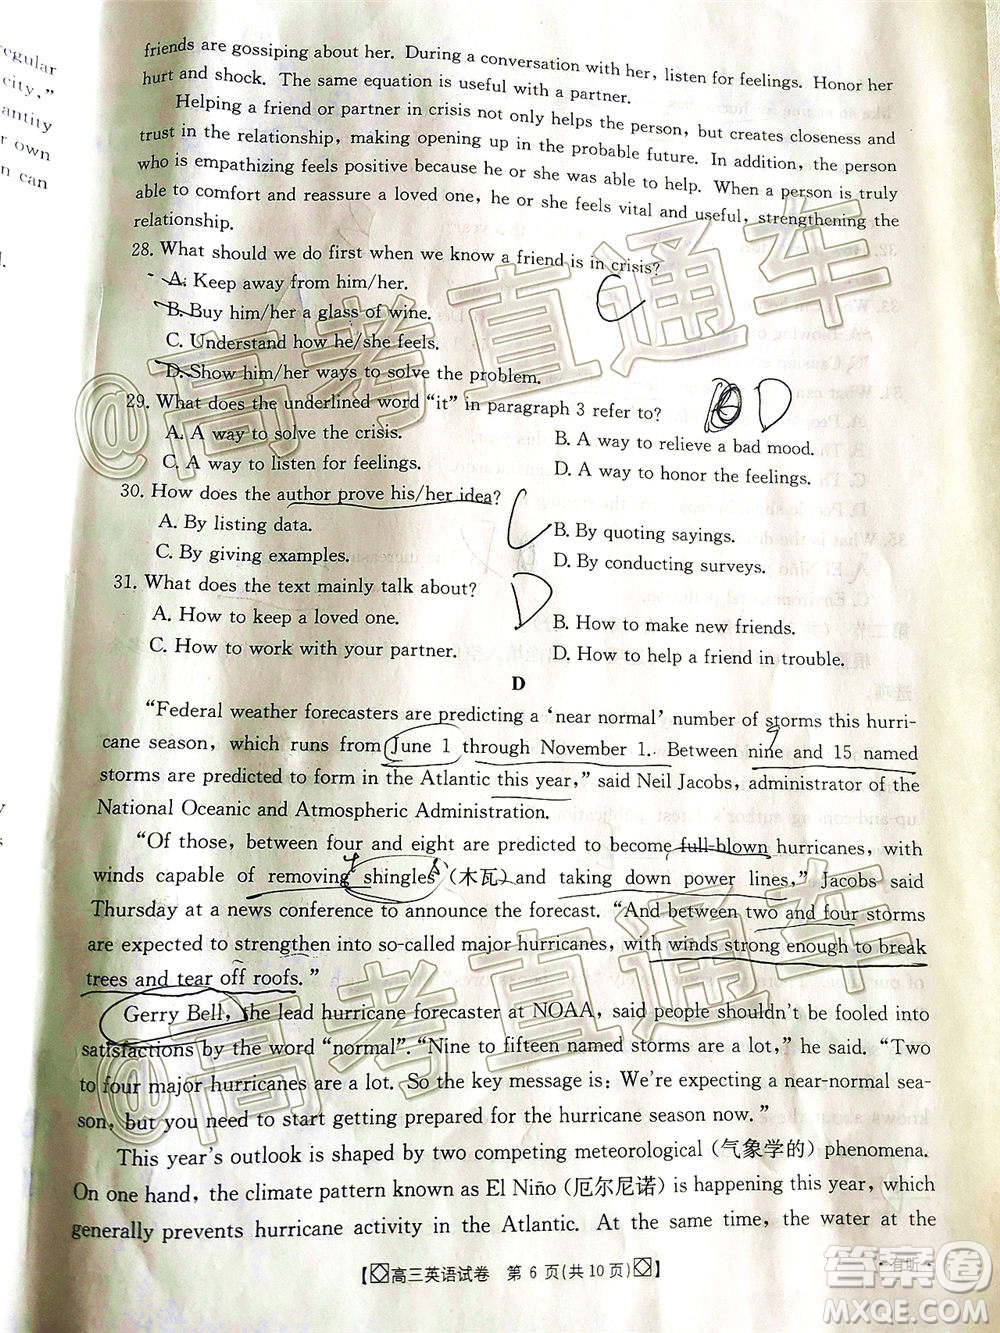 egular
city,"
antity
r own
n can
friends are gossiping about her. During a conversation with her, listen for feelings. Honor her
hurt and shock. The same equation is useful with a partner.
Helping a friend or partner in crisis not only helps the person, but creates closeness and
trust in the relationship, making opening up in the probable future. In addition, the person
who is empathizing feels positive because he or she was able to help. When a person is truly
able to comfort and reassure a loved one, he or she feels vital and useful, strengthening the
relationship.
28. What should we do first when we know a friend is in crisis?
A. Keep away from him/her.
B. Buy him/her a glass of wine.
C. Understand how he/she feels.
D. Show him/her ways to solve the problem.
C
29. What does the underlined word "it" in paragraph 3 refer to?
D
A. A way to solve the crisis.
B. A way to relieve a bad mood.
C. A way to listen for feelings.
D. A way to honor the feelings.
30. How does the author prove his/her idea?
C
A. By listing data.
B. By quoting sayings.
C. By giving examples.
D. By conducting surveys.
31. What does the text mainly talk about?
D
A. How to keep a loved one.
B. How to make new friends.
C. How to work with your partner.
D. How to help a friend in trouble.
D
"Federal weather forecasters are predicting a 'near normal' number of storms this hurri-
cane season, which runs from June 1 through November 1. Between nine and 15 named
storms are predicted to form in the Atlantic this year," said Neil Jacobs, administrator of the
National Oceanic and Atmospheric Administration.
"Of those, between four and eight are predicted to become full-blown hurricanes, with
winds capable of removing shingles (木瓦) and taking down power lines," Jacobs said
Thursday at a news conference to announce the forecast. "And between two and four storms
are expected to strengthen into so-called major hurricanes, with winds strong enough to break
trees and tear off roofs."
Gerry Bell, the lead hurricane forecaster at NOAA, said people shouldn't be fooled into
satisfactions by the word "normal". "Nine to fifteen named storms are a lot," he said. "Two
to four major hurricanes are a lot. So the key message is: We're expecting a near-normal sea-
son, but you need to start getting prepared for the hurricane season now."
This year's outlook is shaped by two competing meteorological (气象学的) phenomena.
On one hand, the climate pattern known as El Niño (厄尔尼诺) is happening this year, which
generally prevents hurricane activity in the Atlantic. At the same time, the water at the
【高三英语试卷 第 6 页(共 10 页)】
·有听·
@高考直通车
@高考直通车
答案圈
MXQE.COM